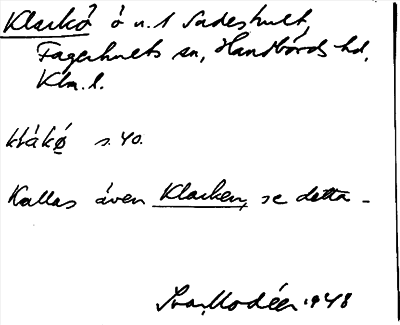 Klarkö ö n. 1 Sadeshult,
Fagerhults sn, Handbörds hd,
Klm. l.
klákø s. 40.
Kallas även Klarken, se detta –
Ivar Modéer 1948